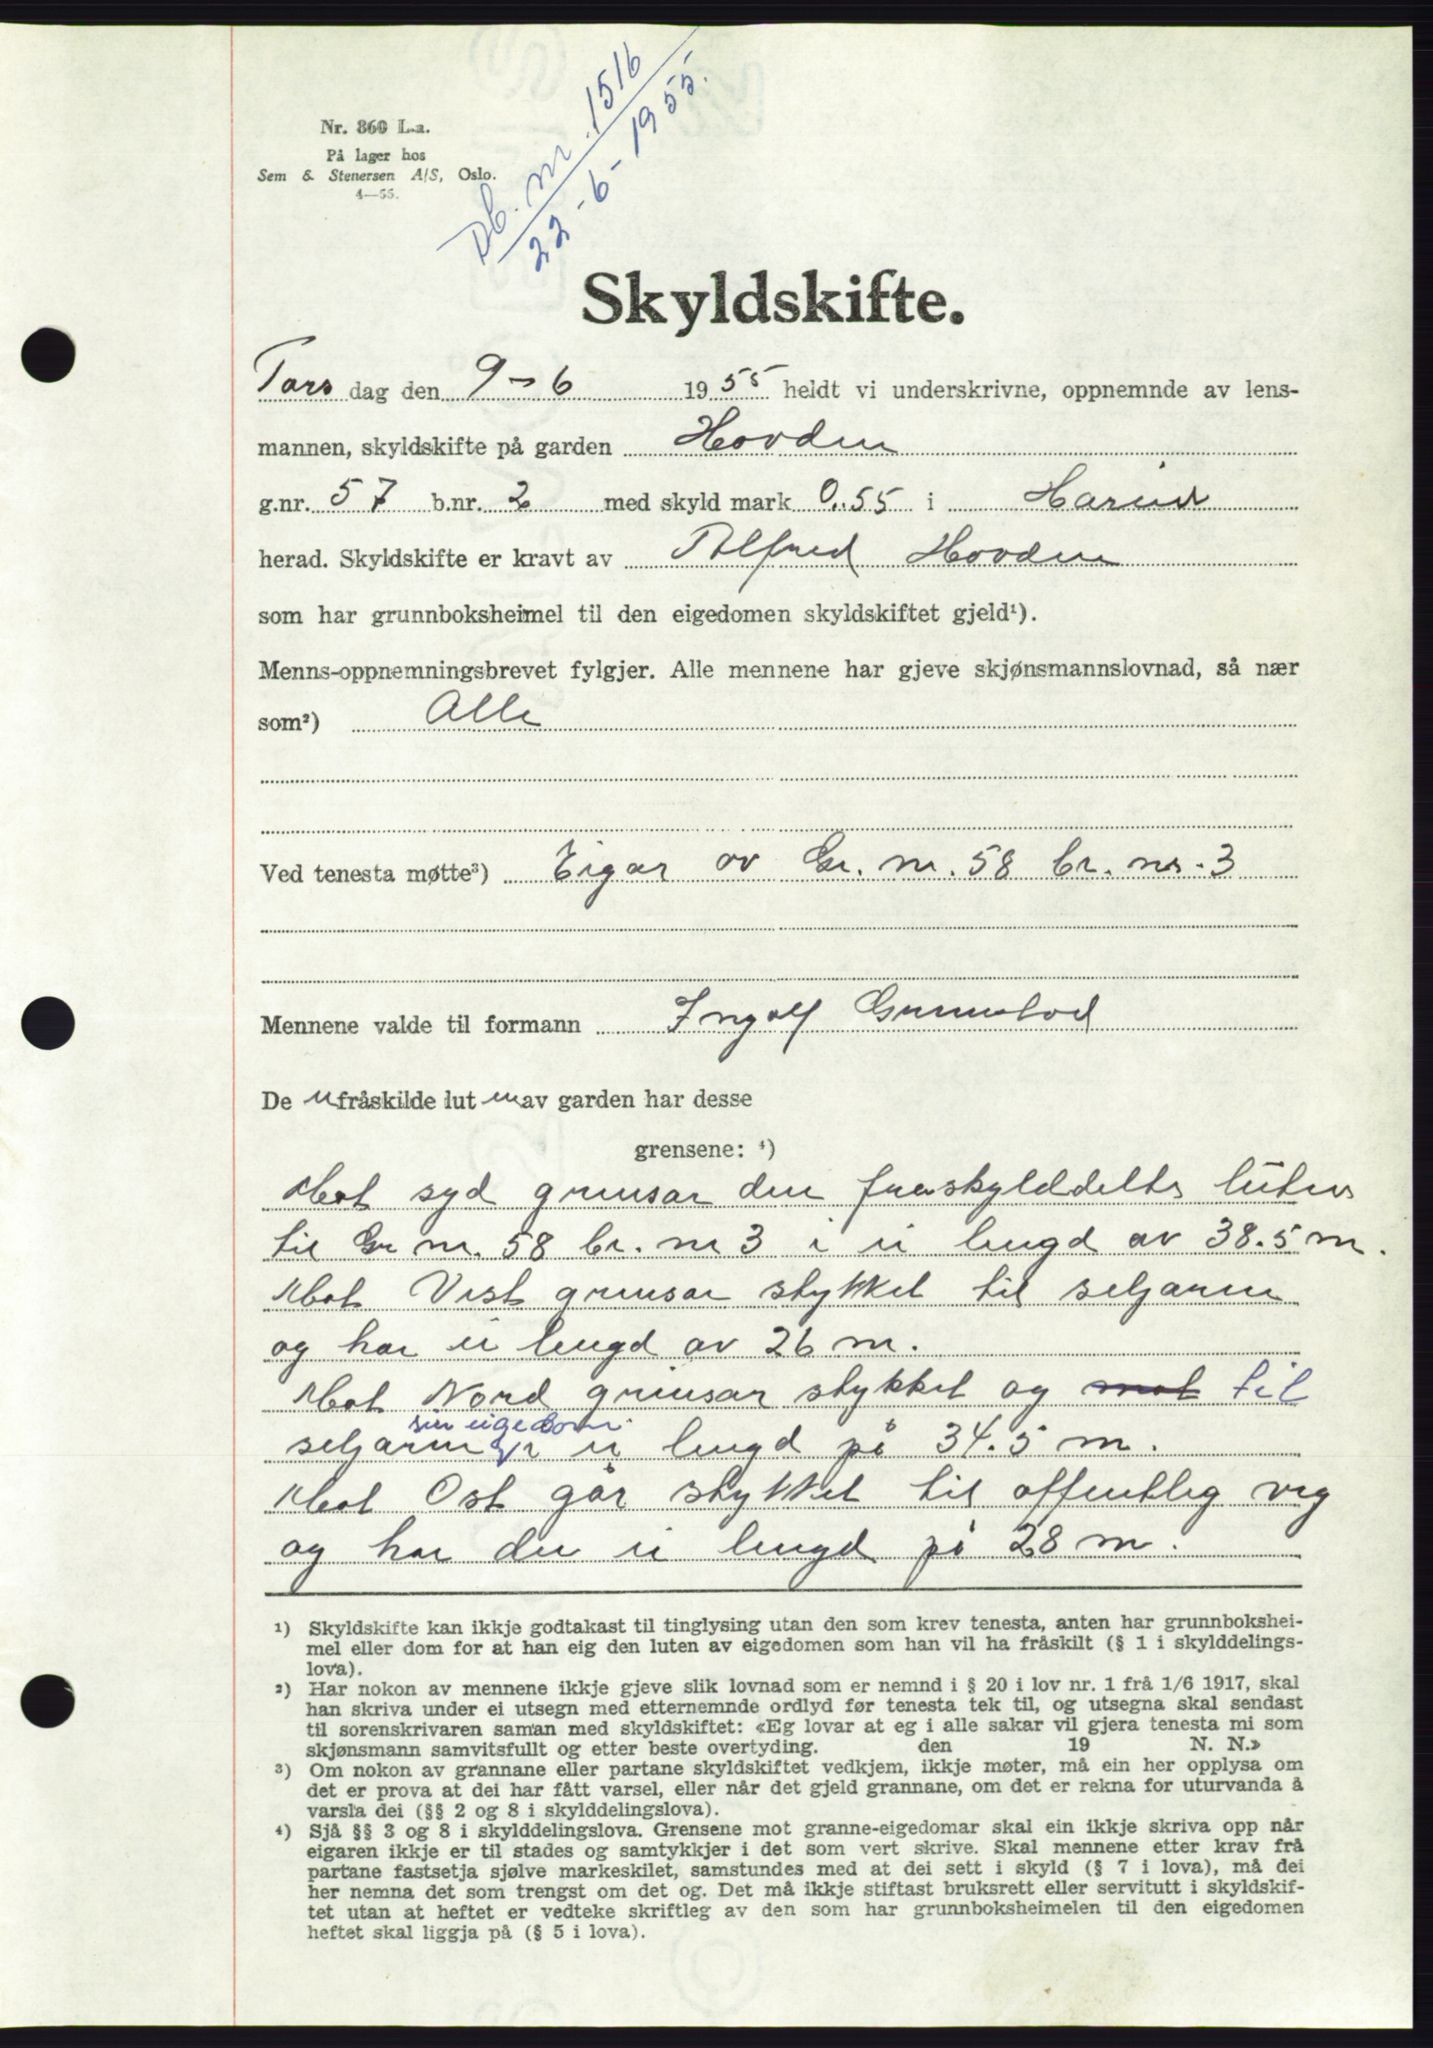 Db. nr. 1516
22-6-1955.
Nr. 360 L.a.
På lager hos
Sem & Stenersen A/S, Oslo.
4—55.
Skyldskifte.
Tors dag den 9-6 1955 heldt vi underskrivne, oppnemnde av lens-
mannen, skyldskifte på garden Hovden
g.nr. 57 b.nr. 2 med skyld mark 0.55 i Hareid
herad. Skyldskifte er kravt av Alfred Hovden
som har grunnboksheimel til den eigedomen skyldskiftet gjeld¹).
Menns-oppnemningsbrevet fylgjer. Alle mennene har gjeve skjønsmannslovnad, så nær
som²) Alle
Ved tenesta møtte³) Eigar av Gr. nr. 58 br. nr. 3
Mennene valde til formann Ingolf Grimstad
De n fråskilde lut en av garden har desse
grensene: ⁴)
Mot syd grensar den fraskylddelte luten
til Gr nr. 58 br. nr 3 i ei lengd av 38.5 m.
Mot Vest grensar stykket til seljaren
og har ei lengd av 26 m.
Mot Nord grensar stykket og mot til
sin eigedom
seljaren i ei lengd på 34.5 m.
Mot Ost går stykket til offentleg veg
og har der ei lengd på 28 m.
¹) Skyldskifte kan ikkje godtakast til tinglysing utan den som krev tenesta, anten har grunnbokshei-
mel eller dom for at han eig den luten av eigedomen som han vil ha fråskilt (§ 1 i skylddelings-
lova).
²) Har nokon av mennene ikkje gjeve slik lovnad som er nemnd i § 20 i lov nr. 1 frå 1/6 1917, skal
han skriva under ei utsegn med etternemnde ordlyd før tenesta tek til, og utsegna skal sendast
til sorenskrivaren saman med skyldskiftet: «Eg lovar at eg i alle sakar vil gjera tenesta mi som
skjønsmann samvitsfullt og etter beste overtyding. den 19 N. N.»
³) Om nokon av grannane eller partane skyldskiftet vedkjem, ikkje møter, må ein her opplysa om
det er prova at dei har fått varsel, eller når det gjeld grannane, om det er rekna for uturvanda å
varsla dei (§§ 2 og 8 i skylddelingslova).
⁴) Sjå §§ 3 og 8 i skylddelingslova. Grensene mot granne-eigedomar skal ein ikkje skriva opp når
eigaren ikkje er til stades og samtykkjer i det som vert skrive. Skal mennene etter krav frå
partane fastsetja sjølve markeskilet, samstundes med at dei sett i skyld (§ 7 i lova), må dei
her nemna det som trengst om det og. Det må ikkje stiftast bruksrett eller servitutt i skyldskif-
tet utan at heftet er vedteke skriftleg av den som har grunnboksheimelen til den eigedomen
heftet skal liggja på (§ 5 i lova).